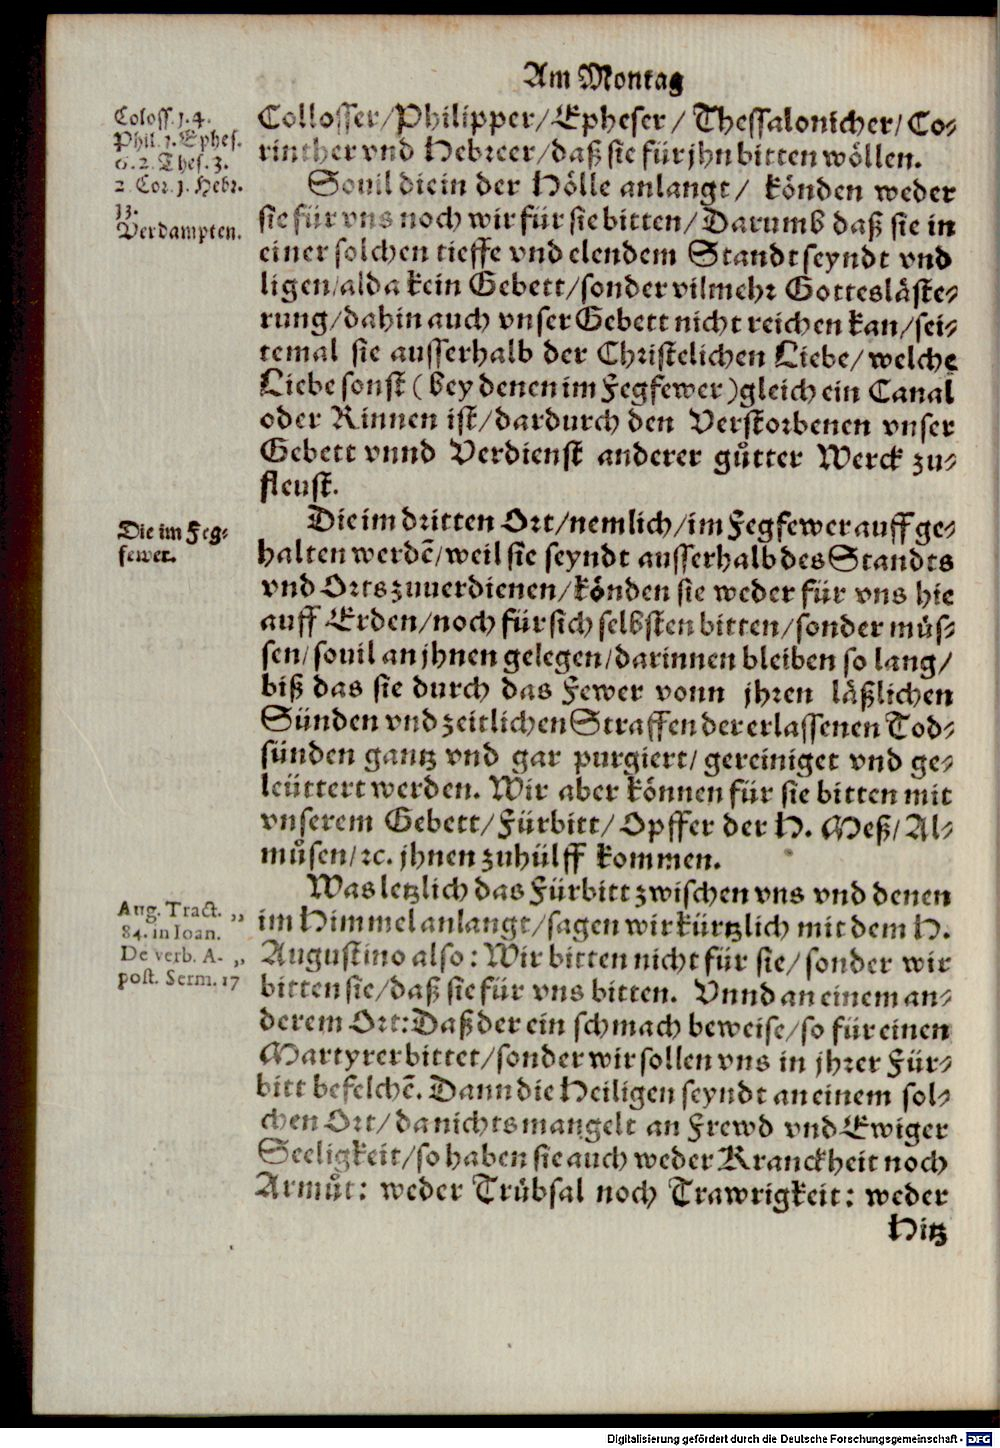 Am Montag
Coloss. 1. 4.
Phil. 1. Ephes.
6. 2. Thes. 3.
2. Cor. 1. Hebr.
13.
Verdampten.
Collosser/Philipper/Epheser/ Thessalonicher/ Co-
rinther vnd Hebreer/daß sie für jhn bitten wöllen.
Souil die in der Hölle anlangt/ könden weder
sie für vns noch wir für sie bitten/Darumb daß sie in
einer solchen tieffe vnd elendem Standt seyndt vnd
ligen/alda kein Gebett/sonder vilmehr Gottesläste-
rung/dahin auch vnser Gebett nicht reichen kan/sei-
temal sie ausserhalb der Christelichen Liebe/welche
Liebe sonst (bey denen im Fegfewer)gleich ein Canal
oder Rinnen ist/dardurch den Verstorbenen vnser
Gebett vnnd Verdienst anderer gůtter Werck zu-
fleust.
Die im Feg-
fewer.
Die im dritten Ort/nemlich/im Fegfewer auffge-
halten werdē/weil sie seyndt ausserhalb des Standts
vnd Orts zuuerdienen/könden sie weder für vns hie
auff Erden/noch für sich selbsten bitten/sonder müs-
sen/souil an jhnen gelegen/darinnen bleiben so lang/
biß das sie durch das Fewer vonn jhren läßlichen
Sünden vnd zeitlichen Straffen der erlassenen Tod-
sünden gantz vnd gar purgiert/gereiniget vnd ge-
leüttert werden. Wir aber können für sie bitten mit
vnserem Gebett/Fürbitt/Opffer der H. Meß/Al-
můsen/ꝛc. jhnen zuhülff kommen.
Aug. Tract. „
84. in Ioan.
De verb. A- „
post. Serm. 17
Was letzlich das Fürbitt zwischen vns vnd denen
im Himmel anlangt/sagen wir kürtzlich mit dem H.
Augustino also: Wir bitten nicht für sie/sonder wir
bitten sie/daß sie für vns bitten. Vnnd an einem an-
derem Ort: Daß der ein schmach beweise/so für einen
Martyrer bittet/sonder wir sollen vns in jhrer Für-
bitt befelchē. Dann die Heiligen seyndt an einem sol-
chen Ort/da nichts mangelt an Frewd vnd Ewiger
Seeligkeit/so haben sie auch weder Kranckheit noch
Armůt: weder Trübsal noch Trawrigkeit: weder
Hitz
Digitalisierung gefördert durch die Deutsche Forschungsgemeinschaft - DFG